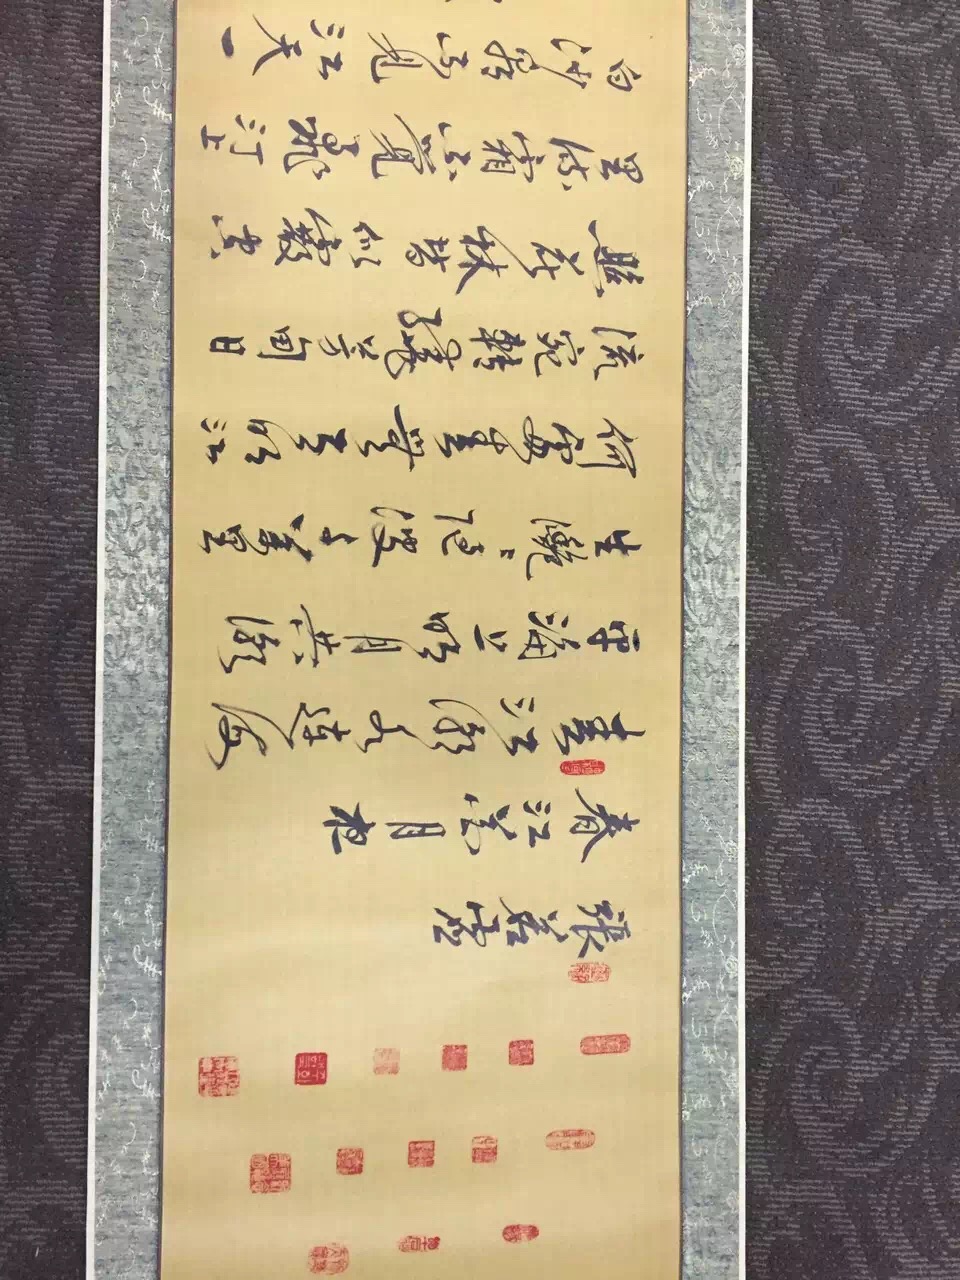 張若虛
春江花月夜
春江潮水連海
平海上明月共潮
生灩〻隨波千萬里
何處春江無月明江
流宛轉繞芳甸月
照花林皆似霰空
里流霜不覺飛汀上
白沙看不見江天一